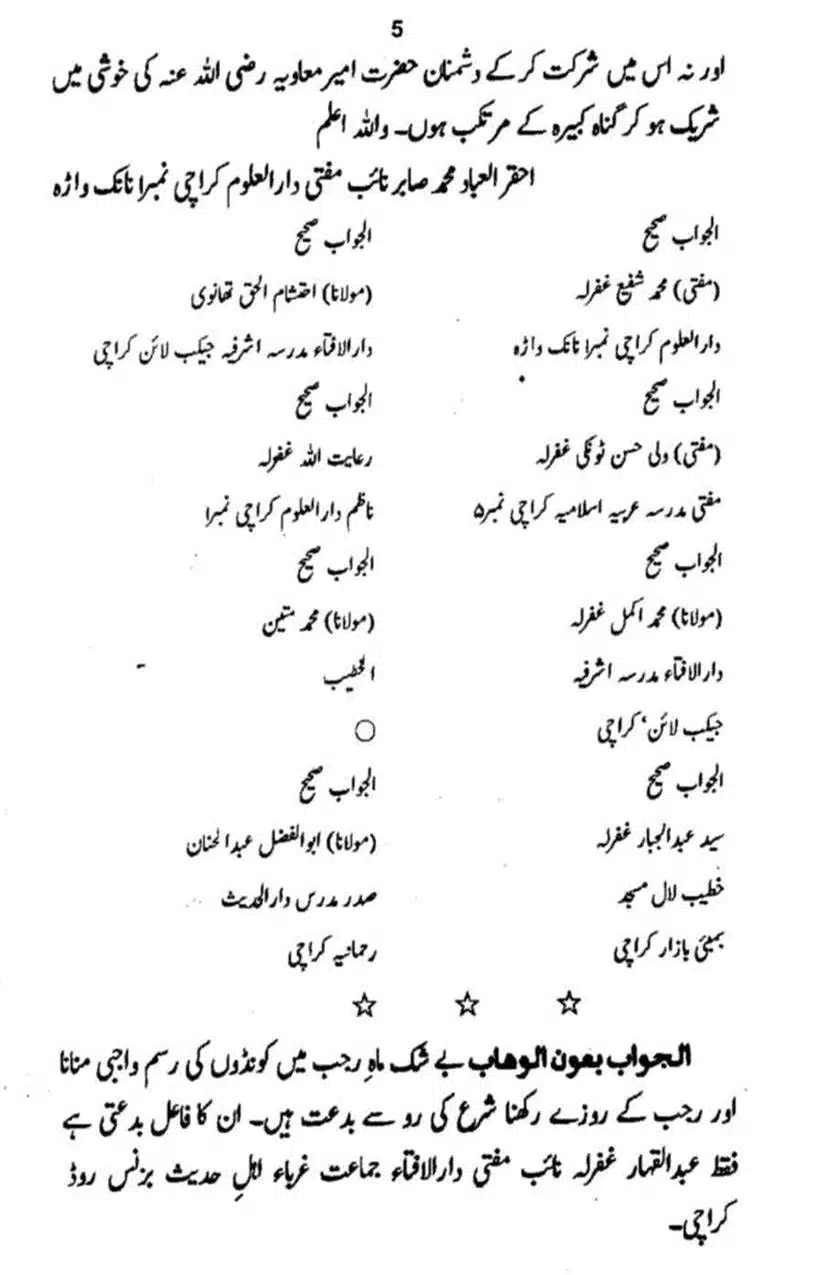 5
اور نہ اس میں شرکت کر کے دشمنان حضرت امیر معاویہ رضی اللہ عنہ کی خوشی میں
شریک ہو کر گناہ کبیرہ کے مرتکب ہوں۔ واللہ اعلم
احقر العباد محمد صابر نائب مفتی دارالعلوم کراچی نمبر۱ نانک واڑہ
الجواب صحیح
(مفتی) محمد شفیع غفرلہ
دارالعلوم کراچی نمبر۱ نانک واڑہ
الجواب صحیح
(مفتی) ولی حسن ٹونکی غفرلہ
مفتی مدرسہ عربیہ اسلامیہ کراچی نمبر۵
الجواب صحیح
(مولانا) محمد اکمل غفرلہ
دارالافتاء مدرسہ اشرفیہ
جیکب لائن، کراچی
الجواب صحیح
سید عبدالجبار غفرلہ
خطیب لال مسجد
بمبئی بازار کراچی
الجواب صحیح
(مولانا) احتشام الحق تھانوی
دارالافتاء مدرسہ اشرفیہ جیکب لائن کراچی
الجواب صحیح
رعایت اللہ غفرلہ
ناظم دارالعلوم کراچی نمبر۱
الجواب صحیح
(مولانا) محمد متین
الخطیب
○
الجواب صحیح
(مولانا) ابوالفضل عبدالحنان
صدر مدرس دارالحدیث
رحمانیہ کراچی
☆ ☆ ☆
الجواب بعون الوهاب بے شک ماہِ رجب میں کونڈوں کی رسم واجبی منانا
اور رجب کے روزے رکھنا شرع کی رو سے بدعت ہیں۔ ان کا فاعل بدعتی ہے
فقط عبدالقہار غفرلہ نائب مفتی دارالافتاء جماعت غرباء اہلِ حدیث بزنس روڈ
کراچی۔